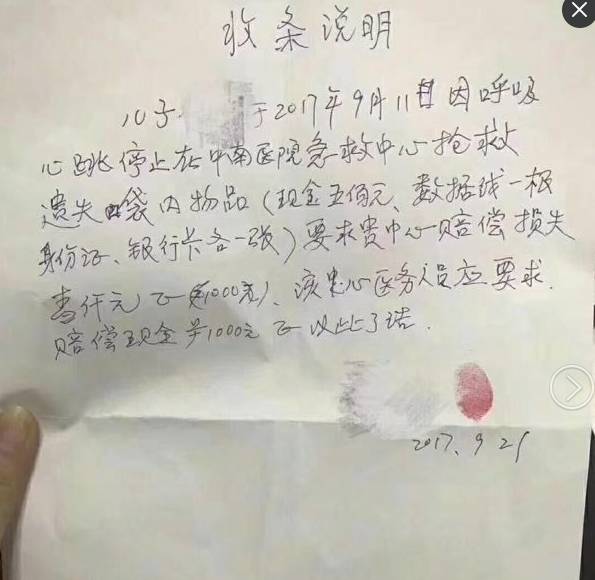 收条说明
儿子 于2017年9月11日因呼吸
心跳停止在中南医院急救中心抢救
遗失口袋内物品（现金五佰元、数据线一根
身份证、银行卡各一张）要求贵中心赔偿损失
壹仟元正（1000元）、该中心医务人员应要求
赔偿现金 1000元正以此了结.
2017. 9 21